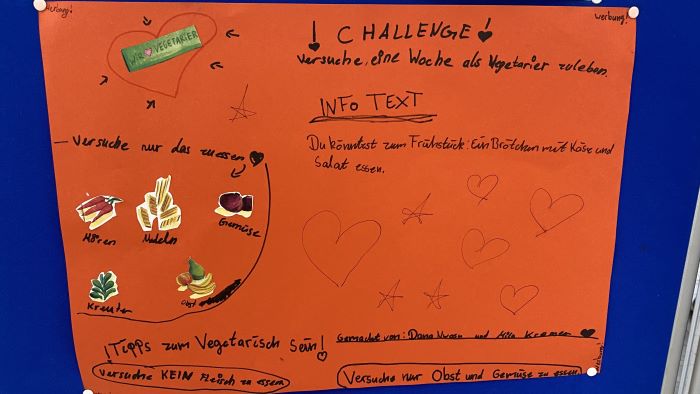 werbung!
werbung!
WIR VEGETARIER
! CHALLENGE!
Versuche, eine Woche als Vegetarier zuleben.
INFO TEXT
Du könntest zum Frühstück: Ein Brötchen mit Käse und
Salat essen.
– Versuche nur das zuessen
Möhren
Nudeln
Gemüse
Kräuter
Obst
¡Tipps zum Vegetarisch sein!
Versuche KEIN Fleisch zu essen
Gemacht von: Dana und Mila
werbung!
Versuche nur Obst und Gemüse zu essen